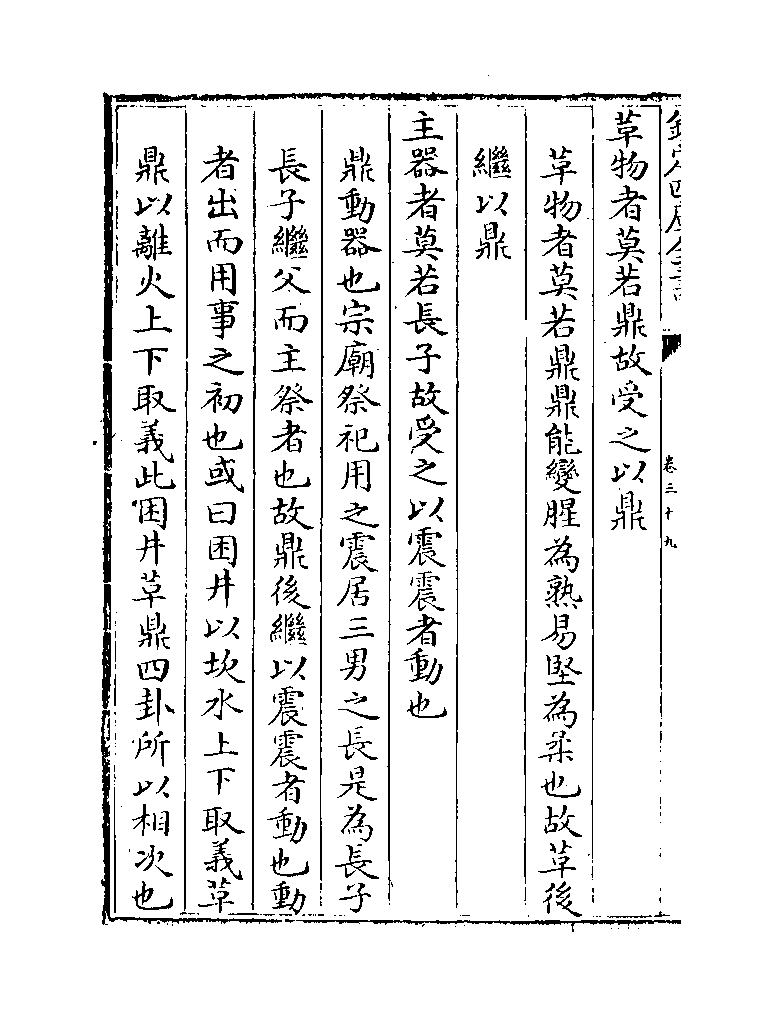 欽定四庫全書
卷三十九
革物者莫若鼎故受之以鼎
革物者莫若鼎鼎能變腥為熟易堅為柔也故革後
繼以鼎
主器者莫若長子故受之以震震者動也
鼎動器也宗廟祭祀用之震居三男之長是為長子
長子繼父而主祭者也故鼎後繼以震震者動也動
者出而用事之初也或曰困井以坎水上下取義革
鼎以離火上下取義此困井革鼎四卦所以相次也